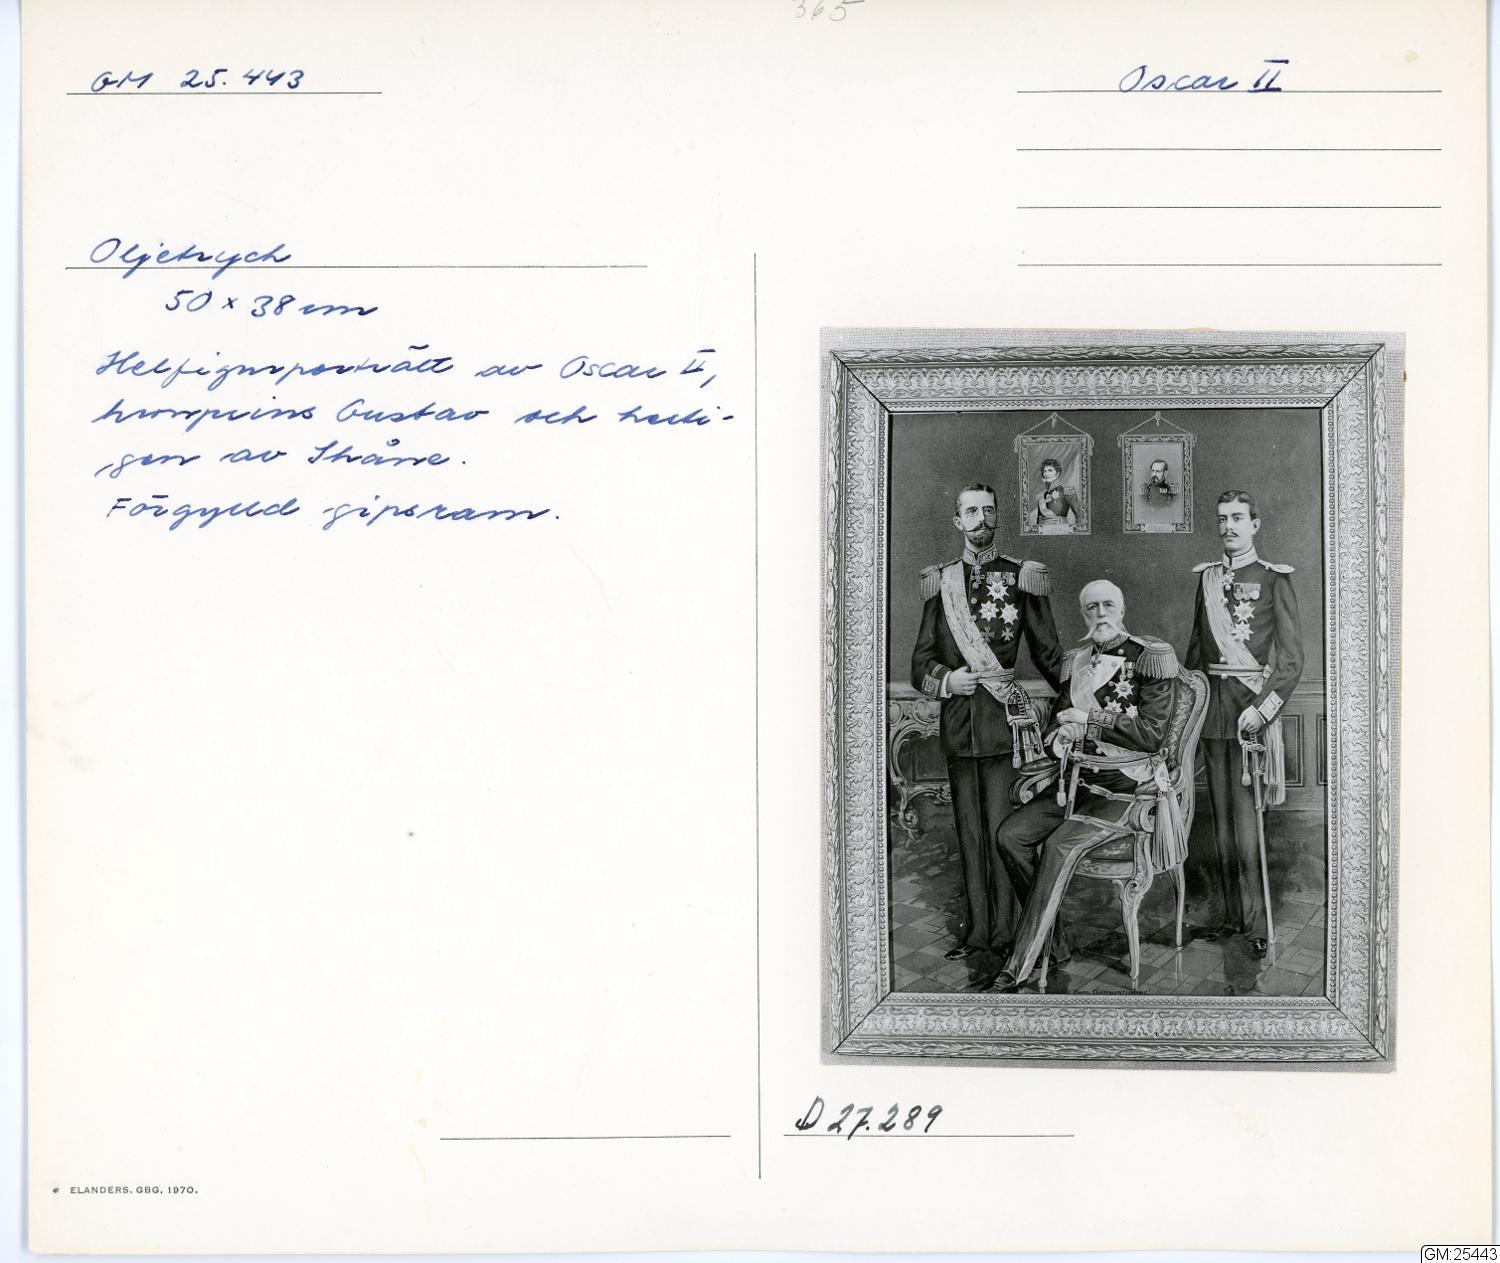 365
GM 25.443
Oscar II
Oljetryck
50 x 38 cm
Helfigurporträtt av Oscar II,
kronprins Gustav och herti-
gen av Skåne.
Förgylld gipsram.
D 27.289
ELANDERS. GBG. 1970.
GM:25443